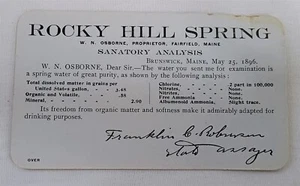 ROCKY HILL SPRING
W. N. OSBORNE, PROPRIETOR, FAIRFIELD, MAINE
SANATORY ANALYSIS
BRUNSWICK, MAINE, May 25, 1896.
W. N. OSBORNE, Dear Sir.—The water you sent me for examination is
a spring water of great purity, as shown by the following analysis:
Total dissolved matter in grains per
United States gallon, 3.48
Organic and Volatile, .58
Mineral, 2.90
Chlorine, 2 part in 100,000
Nitrates, None.
Nitrites, None.
Free Ammonia None.
Albumenoid Ammonia, Slight trace.
Its freedom from organic matter and softness make it admirably adapted for
drinking purposes.
Franklin C. Robinson
State assayer
OVER